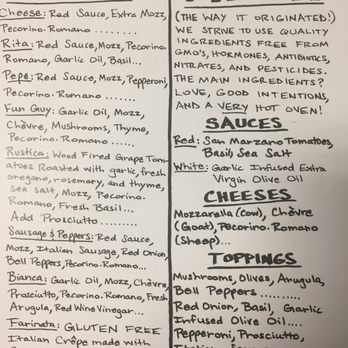 Cheese: Red Sauce, Extra Mozz,
Pecorino-Romano ........
Rita: Red Sauce, Mozz, Pecorino-
Romano, Garlic Oil, Basil...
Pepe: Red Sauce, Mozz, Pepperoni,
Pecorino-Romano .........
Fun Guy: Garlic Oil, Mozz,
Chèvre, Mushrooms, Thyme,
Pecorino-Romano ......
Rustica: Wood Fired Grape Tom-
atoes Roasted with garlic, fresh
oregano, rosemary, and thyme,
Sea Salt, Mozz, Pecorino-
Romano, Fresh Basil...
Add Prosciutto ........
Sausage & Peppers: Red Sauce,
Mozz, Italian Sausage, Red Onion,
Bell Peppers, Pecorino-Romano...
Bianca: Garlic Oil, Mozz, Chèvre,
Prosciutto, Pecorino-Romano, Fresh
Arugula, Red Wine Vinegar...
Farinata: GLUTEN FREE
Italian Crêpe made with
(THE WAY IT ORIGINATED!)
WE STRIVE TO USE QUALITY
INGREDIENTS FREE FROM
GMO'S, HORMONES, ANTIBIOTICS,
NITRATES, AND PESTICIDES.
THE MAIN INGREDIENTS?
LOVE, GOOD INTENTIONS,
AND A VERY HOT OVEN!
SAUCES
Red: San Marzano Tomatoes,
Basil, Sea Salt
White: Garlic Infused Extra
Virgin Olive Oil
CHEESES
Mozzarella (Cow), Chèvre
(Goat), Pecorino-Romano
(Sheep)...
TOPPINGS
Mushrooms, Olives, Arugula,
Bell Peppers ......
Red Onion, Basil, Garlic
Infused Olive Oil....
Pepperoni, Prosciutto,